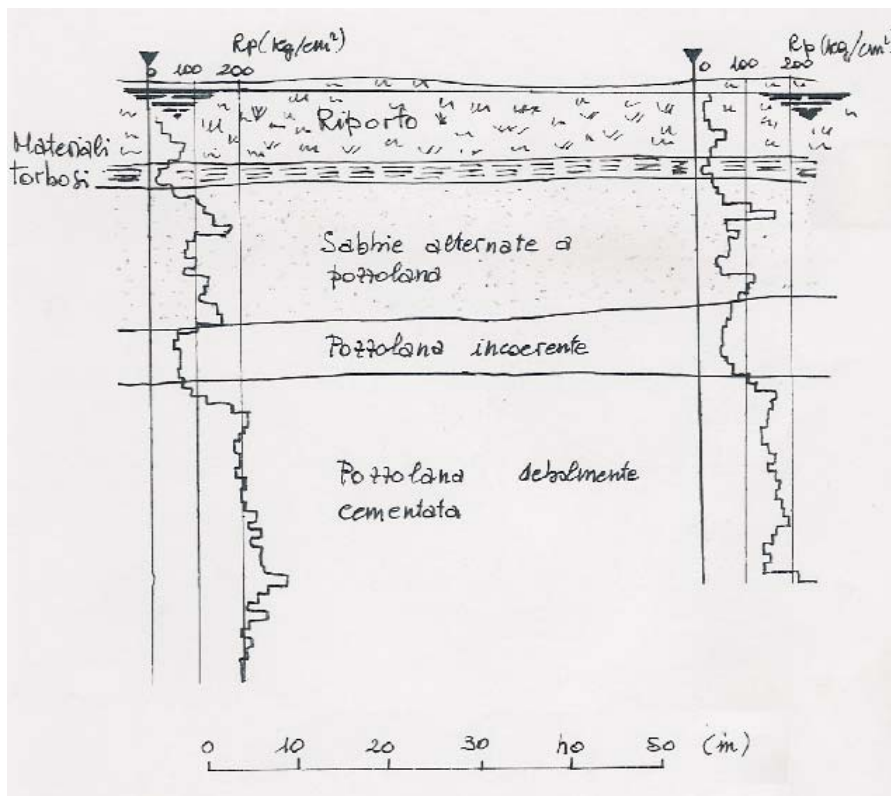 Rp (kg/cm²)
0 100 200
Rp (kg/cm²)
0 100 200
Riporto
Materiali
torbosi
Sabbie alternate a
pozzolana
Pozzolana incoerente
Pozzolana debolmente
cementata
0 10 20 30 40 50 (m)